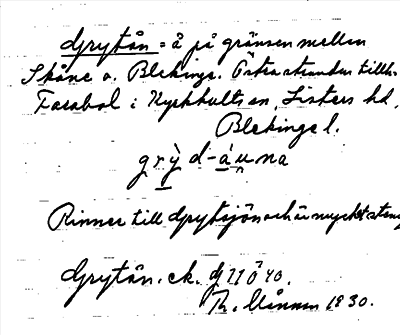 Grytån = å på gränsen mellan
Skåne o. Blekinge. Östra stranden tillh.
Farabol i Kyrkhults sn, Listers hd,
Blekinge l.
grỳd-áuna
Rinner till Grytsjön och är mycket
Grytån. ek. G 11 Ö 40.
1930.